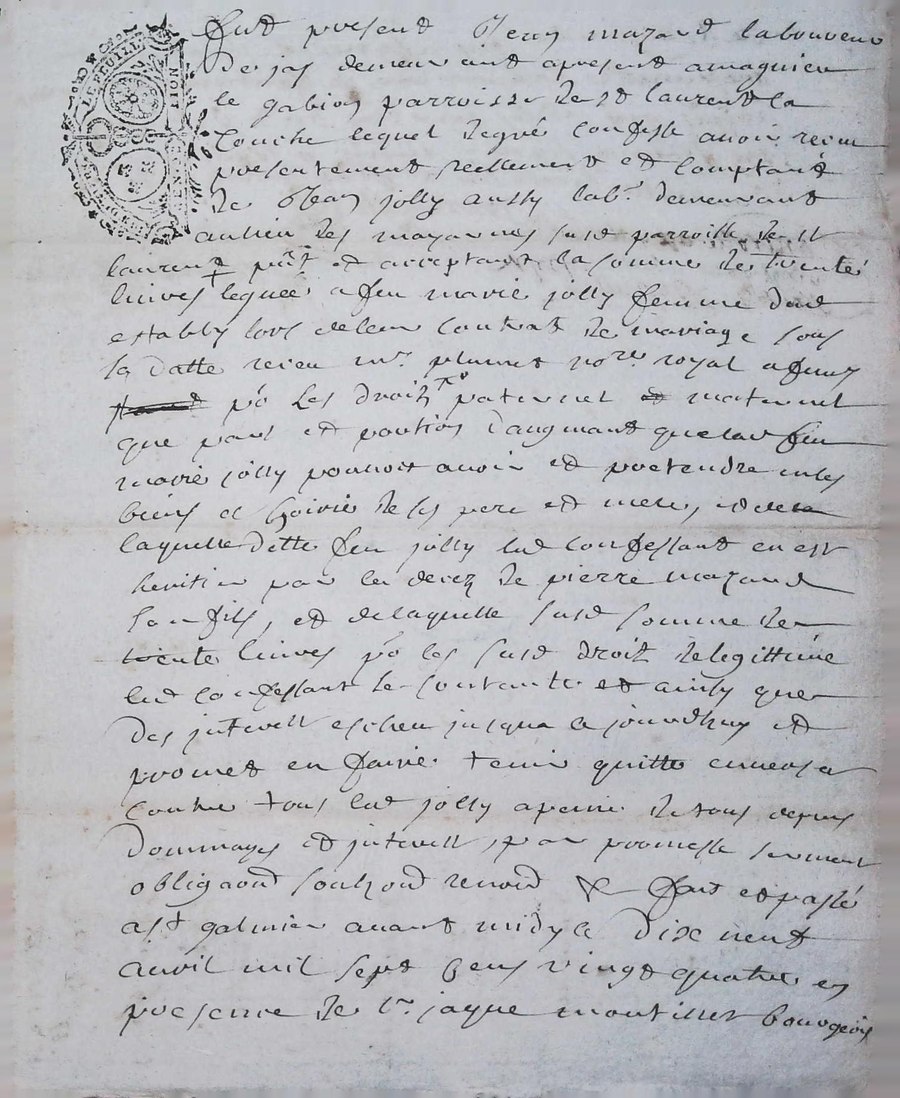 fut present Jean mazard laboureur
de jas demeurant apresent a magnieu
le gabion parroisse de st laurent la
Conche lequel de gré confesse avoir receu
presentement reellement et comptant
de Jean jolly aussy lab.r demeurant
au lieu des mazarines susd parroisse de st
laurent pnt et acceptant la somme de trente
livres leguée a feu marie jolly femme dud
estably lors de leur contrat de mariage sous
sa datte receu m.e plumet no.re royal a feurs
po les droitz paternel et maternel
que part et portion daugmant que lad feu
marie jolly pouvoit avoir et pretendre en les
biens et hoirie de ses pere et mere,
laquelle dette feu jolly led confessant en est
heritier par le decez de pierre mazard
son fils, et de laquelle susd somme de
trente livres po les susd droit de legittime
led confessant se contante et ainsy que
des interest escheu jusqua ce jourdhuy et
promet en faire tenir quitte envers et
contre tous led jolly a peine de tous depens
dommages et interest, par promesse serment
obligaond soubzond renond & fait et passé
a st galmier avant midy le dix neuf
avril mil sept cens vingt quatre en
presence de s.r jaque montillet bourgeois